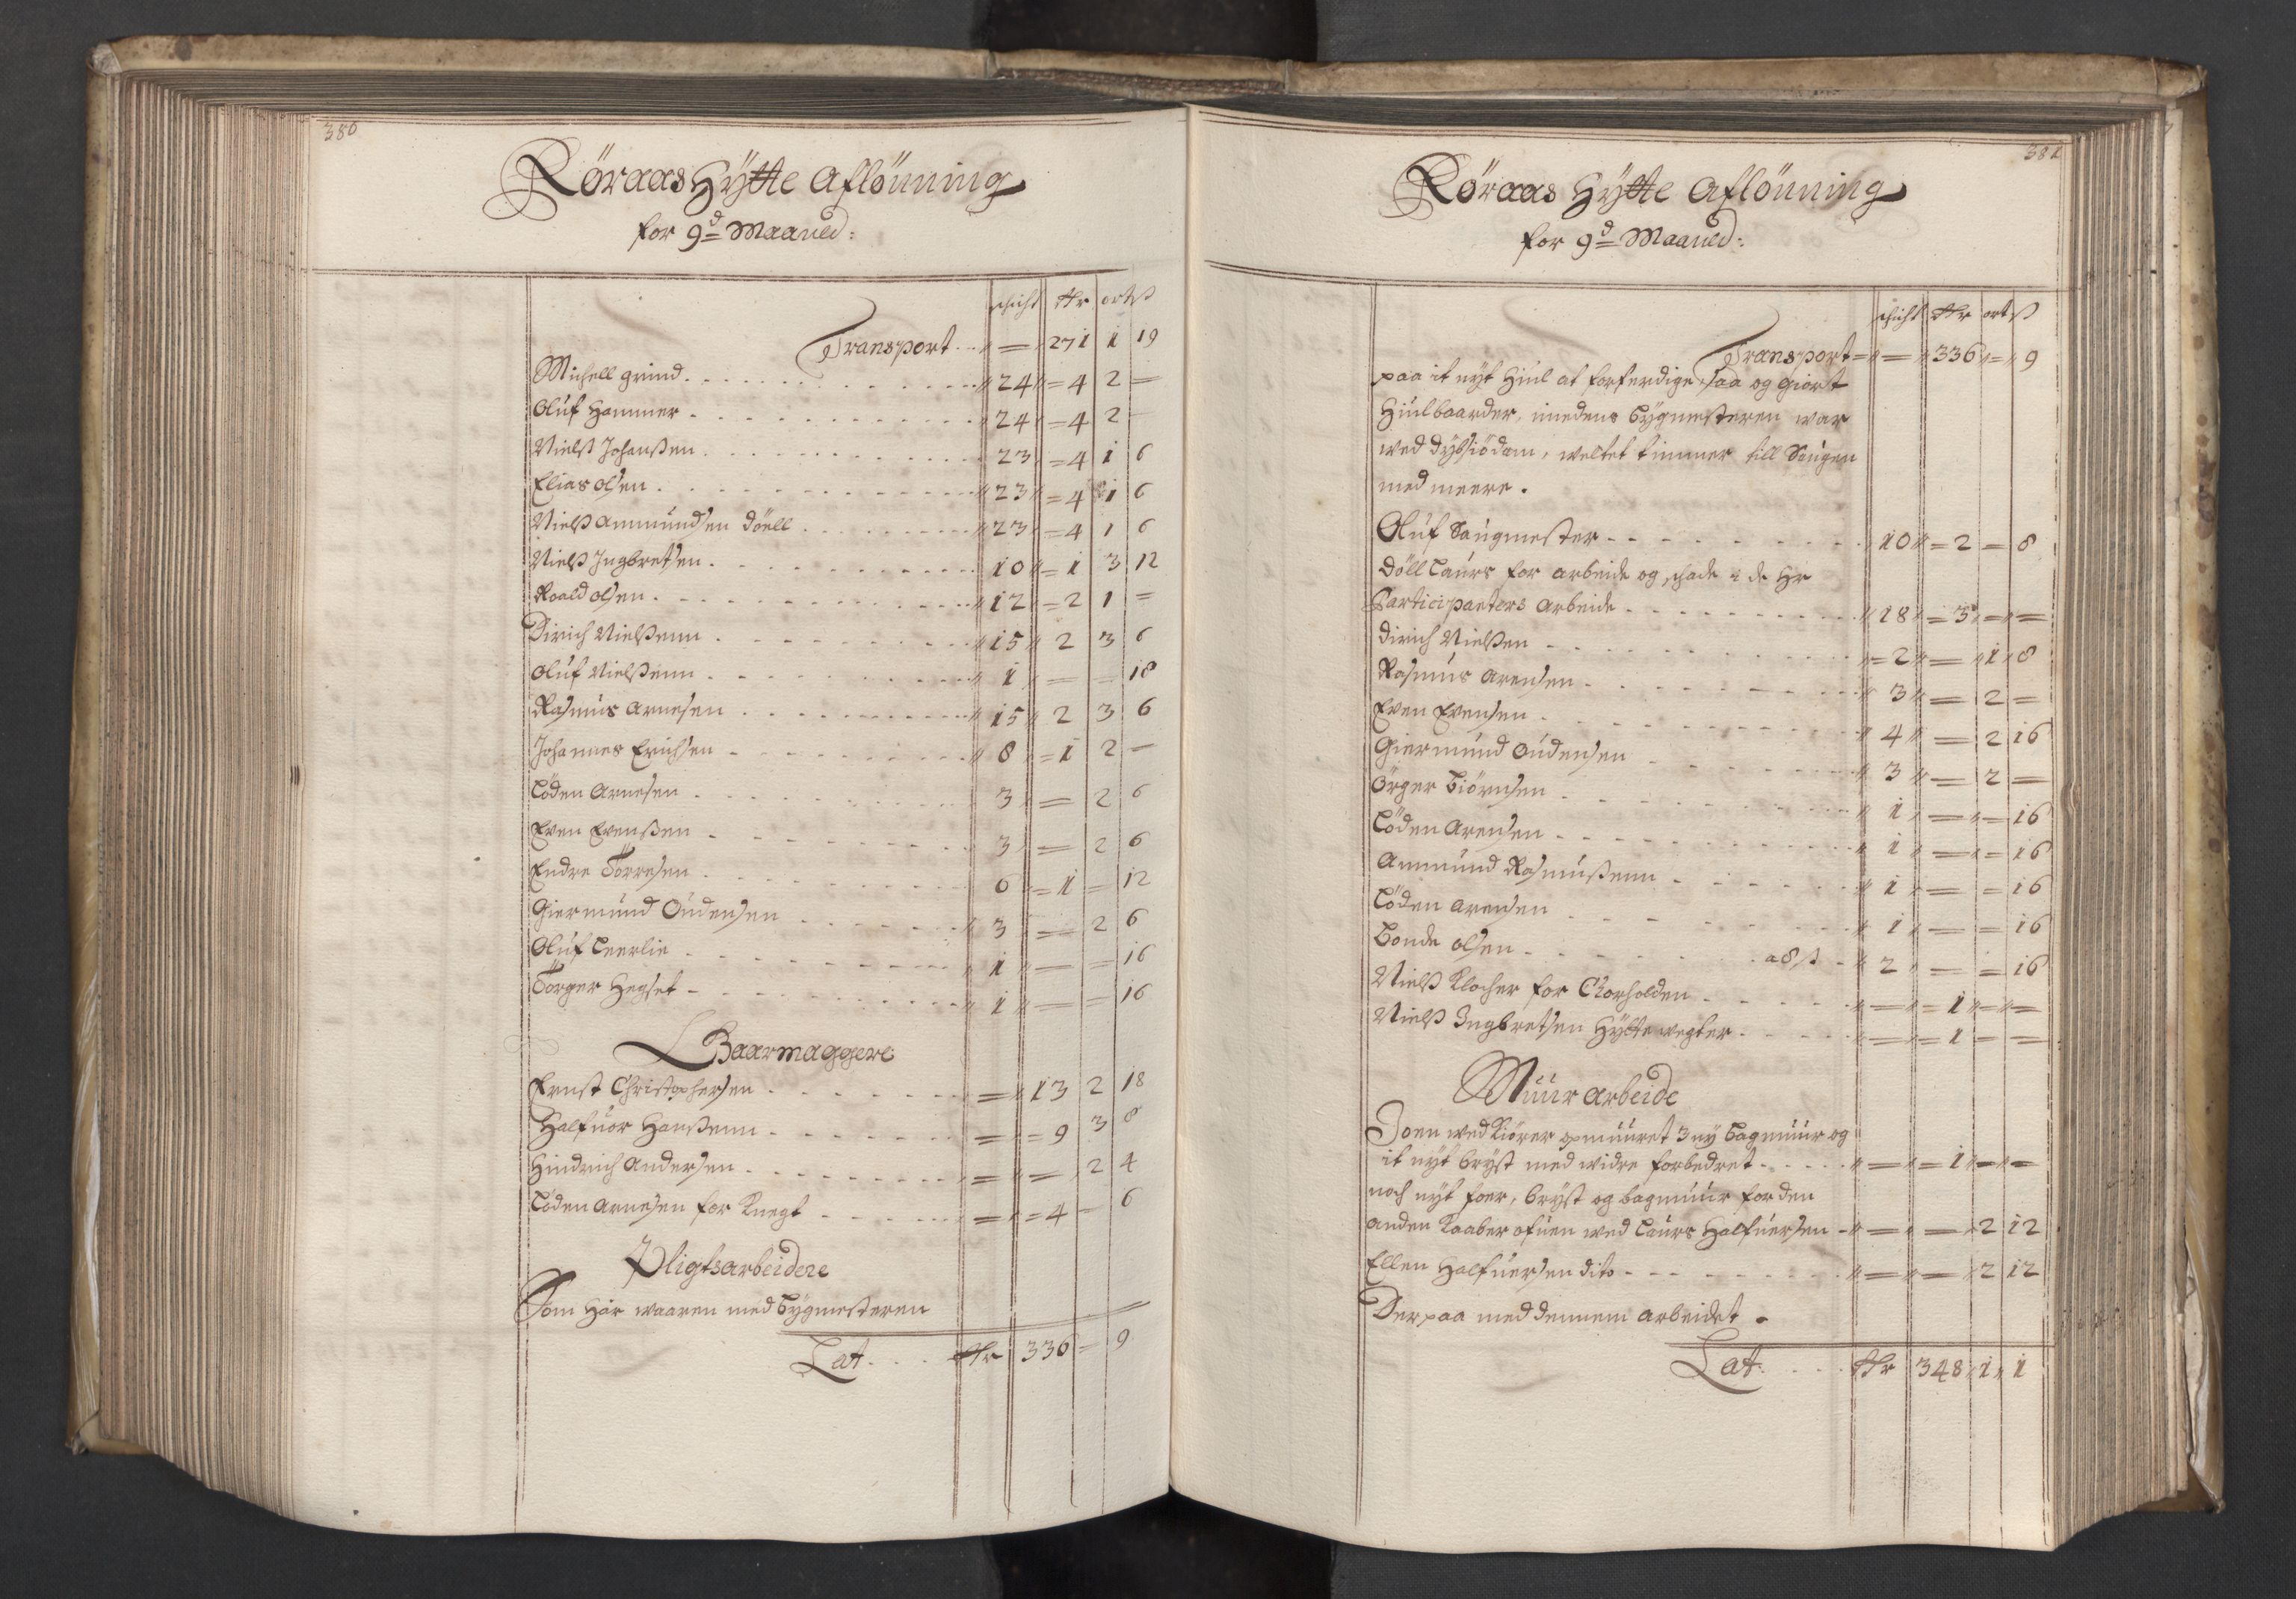 380
Röraas Hÿtte Aflönning
for 9d Maaned:
schicht Rdr ort ß
Transport = 271 1 19
Michell grind 24 = 4 2 =
Oluf Hammer 24 = 4 2 -
Nielß Johanßen 23 = 4 1 6
Elias olsen 23 = 4 1 6
Nielß Ammundsen döell 23 = 4 1 6
Nielß Ingbretsen 10 = 1 3 12
Roald olsen 12 = 2 1 =
Dirich Nielßenn 15 2 3 6
Oluf Nielßenn 1 = = 18
Rasmus Arnesen 15 2 3 6
Johannes Erichsen 8 = 1 2 -
Löden Arnesen 3 = 2 6
Even Evenßen 3 = 2 6
Endre Torresen 6 = 1 = 12
Giermund Oudensen 3 = 2 6
Oluf Leerlie 1 = = 16
Torger Hegset 1 = = 16
Baarmaggere
Ernst Christophersen = 13 2 18
Halfuor Hanßenn = = 9 3 8
Hindrich Andersen = = 2 4
Löden Arnesen for Knegt = = 4 - 6
Pligtsarbeidere
Som Har waaren med Bÿgmesteren
Lat Rdr 336 = 9
381
Röraas Hÿtte Aflönning
for 9d Maaned:
schicht Rdr ort ß
Transport = = 336 = 9
paa it nÿt Hiul at forferdige, saa og giort
Hiulbaarder, imedens Bÿgmesteren war
wed Dÿbsiödam, weltet timmer till Saugen
med meere.
Oluf Saugmester 10 = 2 = 8
Döll Laurs for arbeide og schade i de Hr
Participanters Arbeide 18 = 3 = =
Dirich Nielßen = 2 = 1 8
Rasmus Arensen 3 = 2 =
Even Evensen 4 = 2 16
Giermund Oudensen 3 = 2 =
Örger Biörnsen 1 = = 16
Löden Arensen 1 = = 16
Ammund Rasmußenn 1 = = 16
Löden Arensen 1 = = 16
Bonde olsen a 8 ß 2 = = 16
Nielß Klocher for Chorholden = = 1 = =
Nielß Ingbretsen Hÿttewegter = = 1 = =
Muur Arbeide
Joen wed Kiörer opmuuret 3 nÿ Bagmuur og
it nÿt brÿst med widre forbedret = = 1 = =
noch nÿt foer, brÿst og bagmuur for den
anden Kaaber ofuen wed Laurs Halfuersen = = 2 12
Ellen Halfuersen dito = = 2 12
Der paa med dennem arbeidet.
Lat Rdr 348 1 1